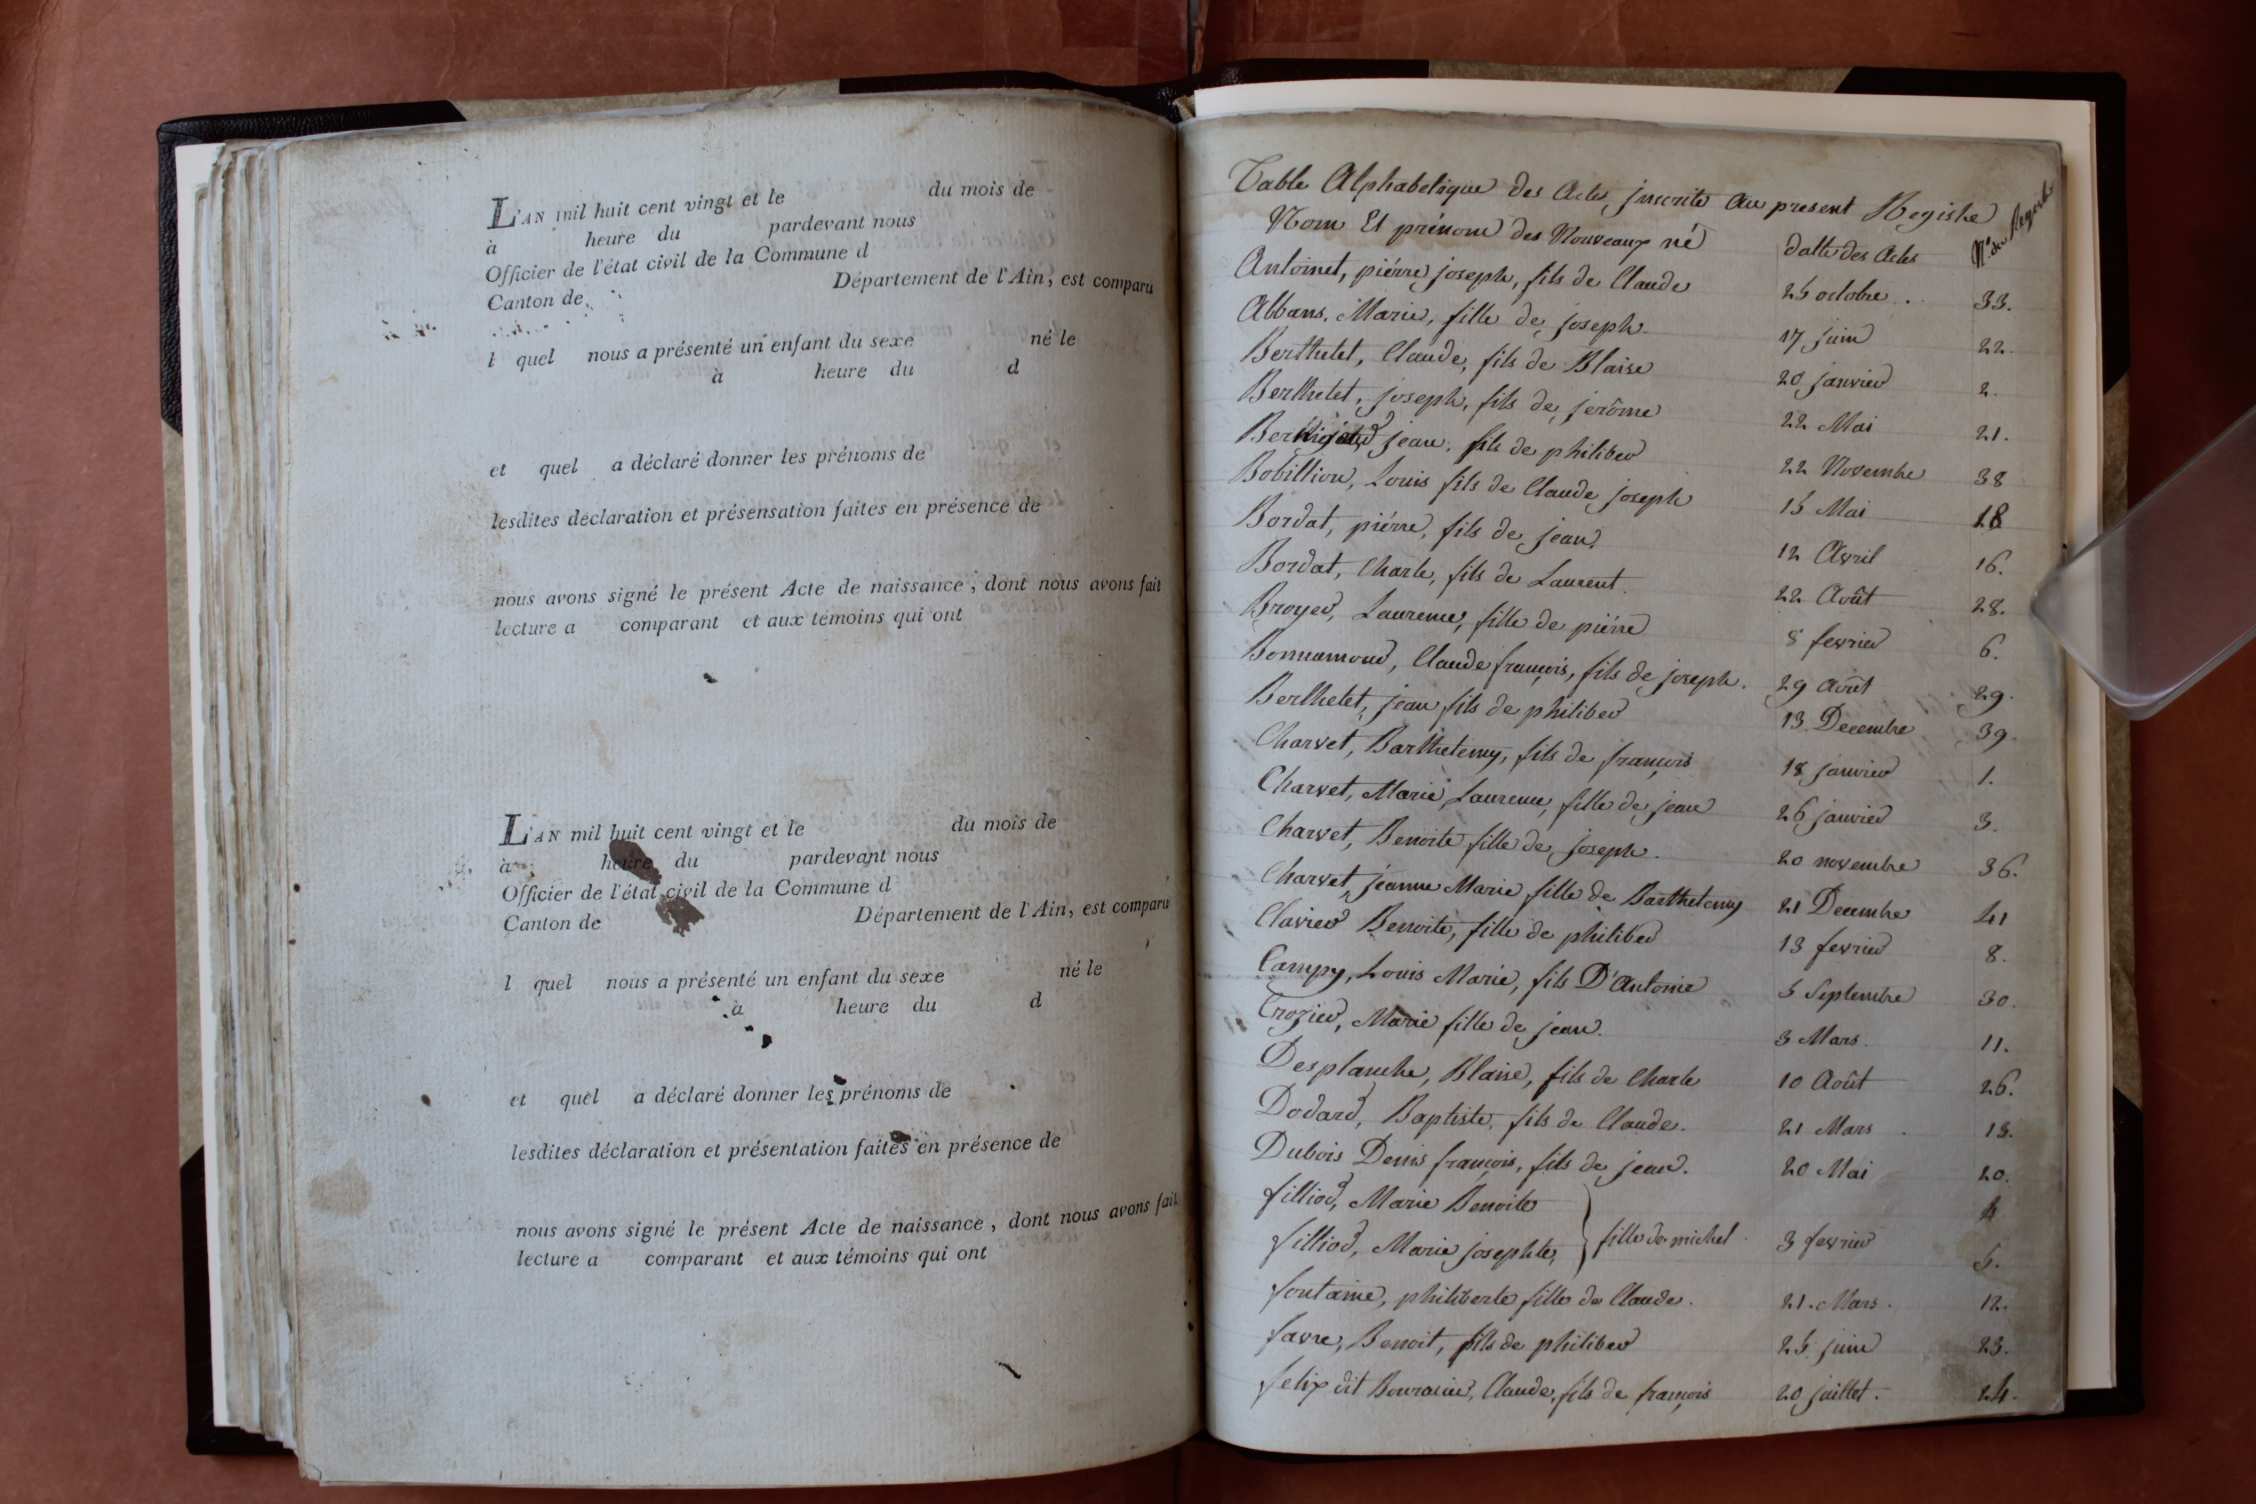 L'AN mil huit cent vingt et le du mois de
à heure du pardevant nous
Officier de l'état civil de la Commune d
Canton de Département de l'Ain, est comparu
l quel nous a présenté un enfant du sexe né le
à heure du d
et quel a déclaré donner les prénoms de
lesdites déclaration et présensation faites en présence de
nous avons signé le présent Acte de naissance, dont nous avons fait
lecture a comparant et aux témoins qui ont
L'AN mil huit cent vingt et le du mois de
à heure du pardevant nous
Officier de l'état civil de la Commune d
Canton de Département de l'Ain, est comparu
l quel nous a présenté un enfant du sexe né le
à heure du d
et quel a déclaré donner les prénoms de
lesdites déclaration et présentation faites en présence de
nous avons signé le présent Acte de naissance, dont nous avons fait
lecture a comparant et aux témoins qui ont
Table Alphabetique des Actes inscrits au present Registre
Nom Et prénom des Nouveaux né datte des Actes N.º des Registre
Antoinet, piérre joseph, fils de Claude 25 octobre. 33.
Abbans, Marie, fille de joseph. 17 juin 22.
Berthelet, Claude, fils de Blaise 20 janvier 2.
Berthelet, joseph, fils de jerôme 22 Mai 21.
jean, fils de philiber 22 Novembre 38
Bobillion, Louis fils de Claude joseph 15 Mai 18
Bordat, piérre, fils de jean. 12 Avril 16.
Bordat, Charle, fils de Laurent. 22 Août 28.
Broyer, Laurence, fille de piérre 8 fevrier 6.
Bonnamour, Claude françois, fils de joseph. 29 Août 29.
Berthelet, jean fils de philiber 13 Decembre 39.
Charvet, Barthelemy, fils de françois 18 janvier 1.
Charvet, Marie Laurence, fille de jean 26 janvier 3.
Charvet, Benoite fille de joseph. 20 novembre 36.
Charvet, jeanne Marie fille de Barthelemy 21 Decembre 41
Clavier Benoite, fille de philiber 13 fevrier 8.
Campy, Louis Marie, fils D'Antoine 5 Septembre 30.
Crozier, Marie fille de jean. 3 Mars. 11.
Desplanche, Blaise, fils de Charle 10 Août 26.
Dodard, Baptiste, fils de Claude. 21 Mars. 13.
Dubois Denis françois, fils de jean. 20 Mai 20.
filliod, Marie Benoite 4
filliod, Marie josephte, fille de michel. 3 fevrier 5.
fontaine, philiberte fille de Claude. 21. Mars. 12.
favre, Benoit, fils de philiber 25 juin 23.
felix dit Bourasin, Claude, fils de françois 20 juillet. 24.